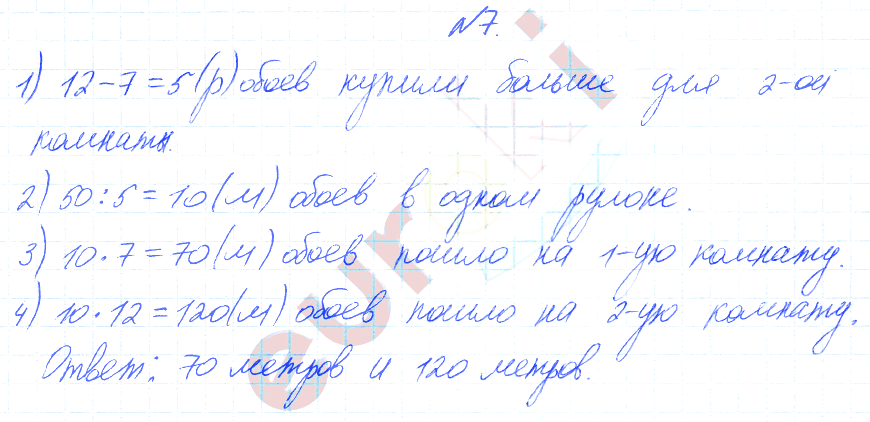 №7.
1) 12-7=5(р) обоев купили больше для 2-ой
комнаты.
2) 50:5=10(м) обоев в одном рулоне.
3) 10·7=70(м) обоев пошло на 1-ую комнату.
4) 10·12=120(м) обоев пошло на 2-ую комнату.
Ответ: 70 метров и 120 метров.